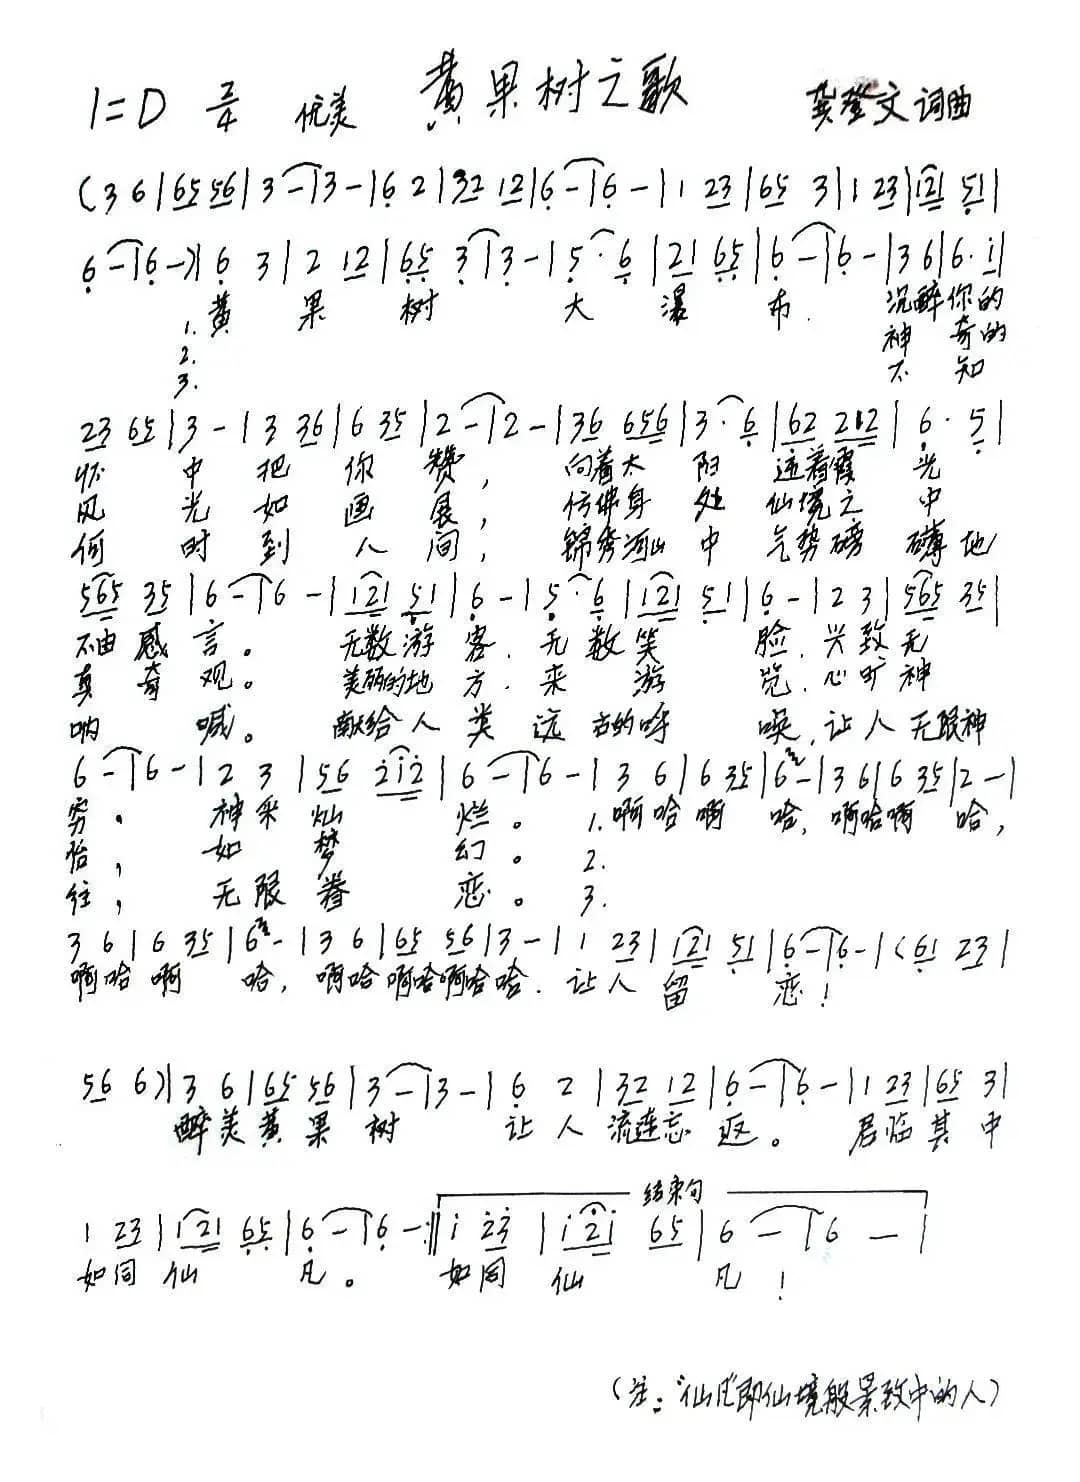 黄果树之歌
1=D 2/4 优美 龚登文词曲
(3 6|65 56|3 -|3 -|6 2|32 12|6 -|6 -|1 23|65 3|1 23|121 51|
6 -|6 -)|6 3|2 12|65 3|3 -|5· 6|21 65|6 -|6 -|3 6|6· i|
1. 黄 果 树 大 瀑 布. 沉醉你的
2. 神 奇的
3. 不 知
23 65|3 -|3 36|6 35|2 -|2 -|36 656|3· 6|62 212|6· 5|
怀 中 把 你 赞, 向着太 阳 迎着霞 光
风 光 如 画 展, 仿佛身 处 仙境之 中
何 时 到 人 间, 锦秀河山 中 气势磅 礴地
565 35|6 -|6 -|121 51|6 -|5· 6|121 51|6 -|2 3|565 35|
不由 感 言。 无数游 客. 无 数 笑 脸. 兴致无
真 奇 观。 美丽的地 方. 来 游 览. 心旷神
呐 喊。 献给人 类 远 古的呼 唤, 让人无限神
6 -|6 -|2 3|56 212|6 -|6 -|3 6|6 35|6 -|3 6|6 35|2 -|
穷。 神采 灿 烂。 1. 啊哈啊 哈, 啊哈啊 哈,
怡, 如 梦 幻。 2.
往, 无限 眷 恋。 3.
3 6|6 35|6 -|3 6|65 56|3 -|1 23|121 51|6 -|6 -|(61 23|
啊哈 啊 哈, 啊哈啊哈啊哈哈. 让人 留 恋!
56 6)|3 6|65 56|3 -|3 -|6 2|32 12|6 -|6 -|1 23|65 3|
醉美黄果树 让人流连忘返。 君临其中
结束句
1 23|121 65|6 -|6 -:‖i 23|i2i 65|6 -|6 -|
如同 仙 凡。 如同 仙 凡!
(注:“仙凡”即仙境般景致中的人)